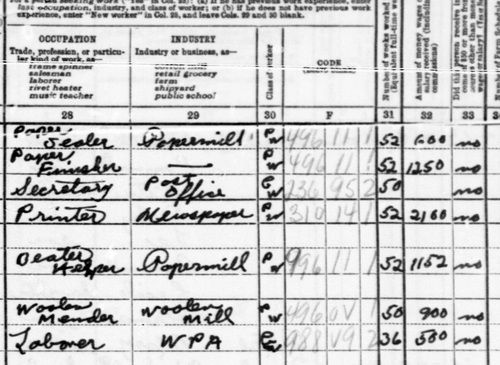 a person seeking work ("Yes" in Col. 25): (a) if he has previous work experience, enter
last occupation, industry, and class of worker; or (b) if he does not have previous work
experience, enter "New worker" in Col. 28, and leave Cols. 29 and 30 blank.
OCCUPATION
Trade, profession, or particu-
lar kind of work, as—
frame spinner
salesman
laborer
rivet heater
music teacher
INDUSTRY
Industry or business, as—
cotton mill
retail grocery
farm
shipyard
public school
Class of worker
CODE
Number of weeks worked
(Equivalent full-time
Amount of money wages or
salary received (including
commissions)
Did this person receive
28 29 30 F 31 32 33
Paper Sealer Papermill PW 496 11 1 52 600 no
Paper Finisher — PW 496 11 1 52 1250 no
Secretary Post Office 236 95 2 50 no
Printer Newspaper PW 310 14 1 52 2100 no
Beater Helper Papermill PW 996 11 1 52 1152 no
Woolen Mender Woolen Mill PW 496 0V 1 50 900 no
Laborer WPA 988 V9 2 36 500 no